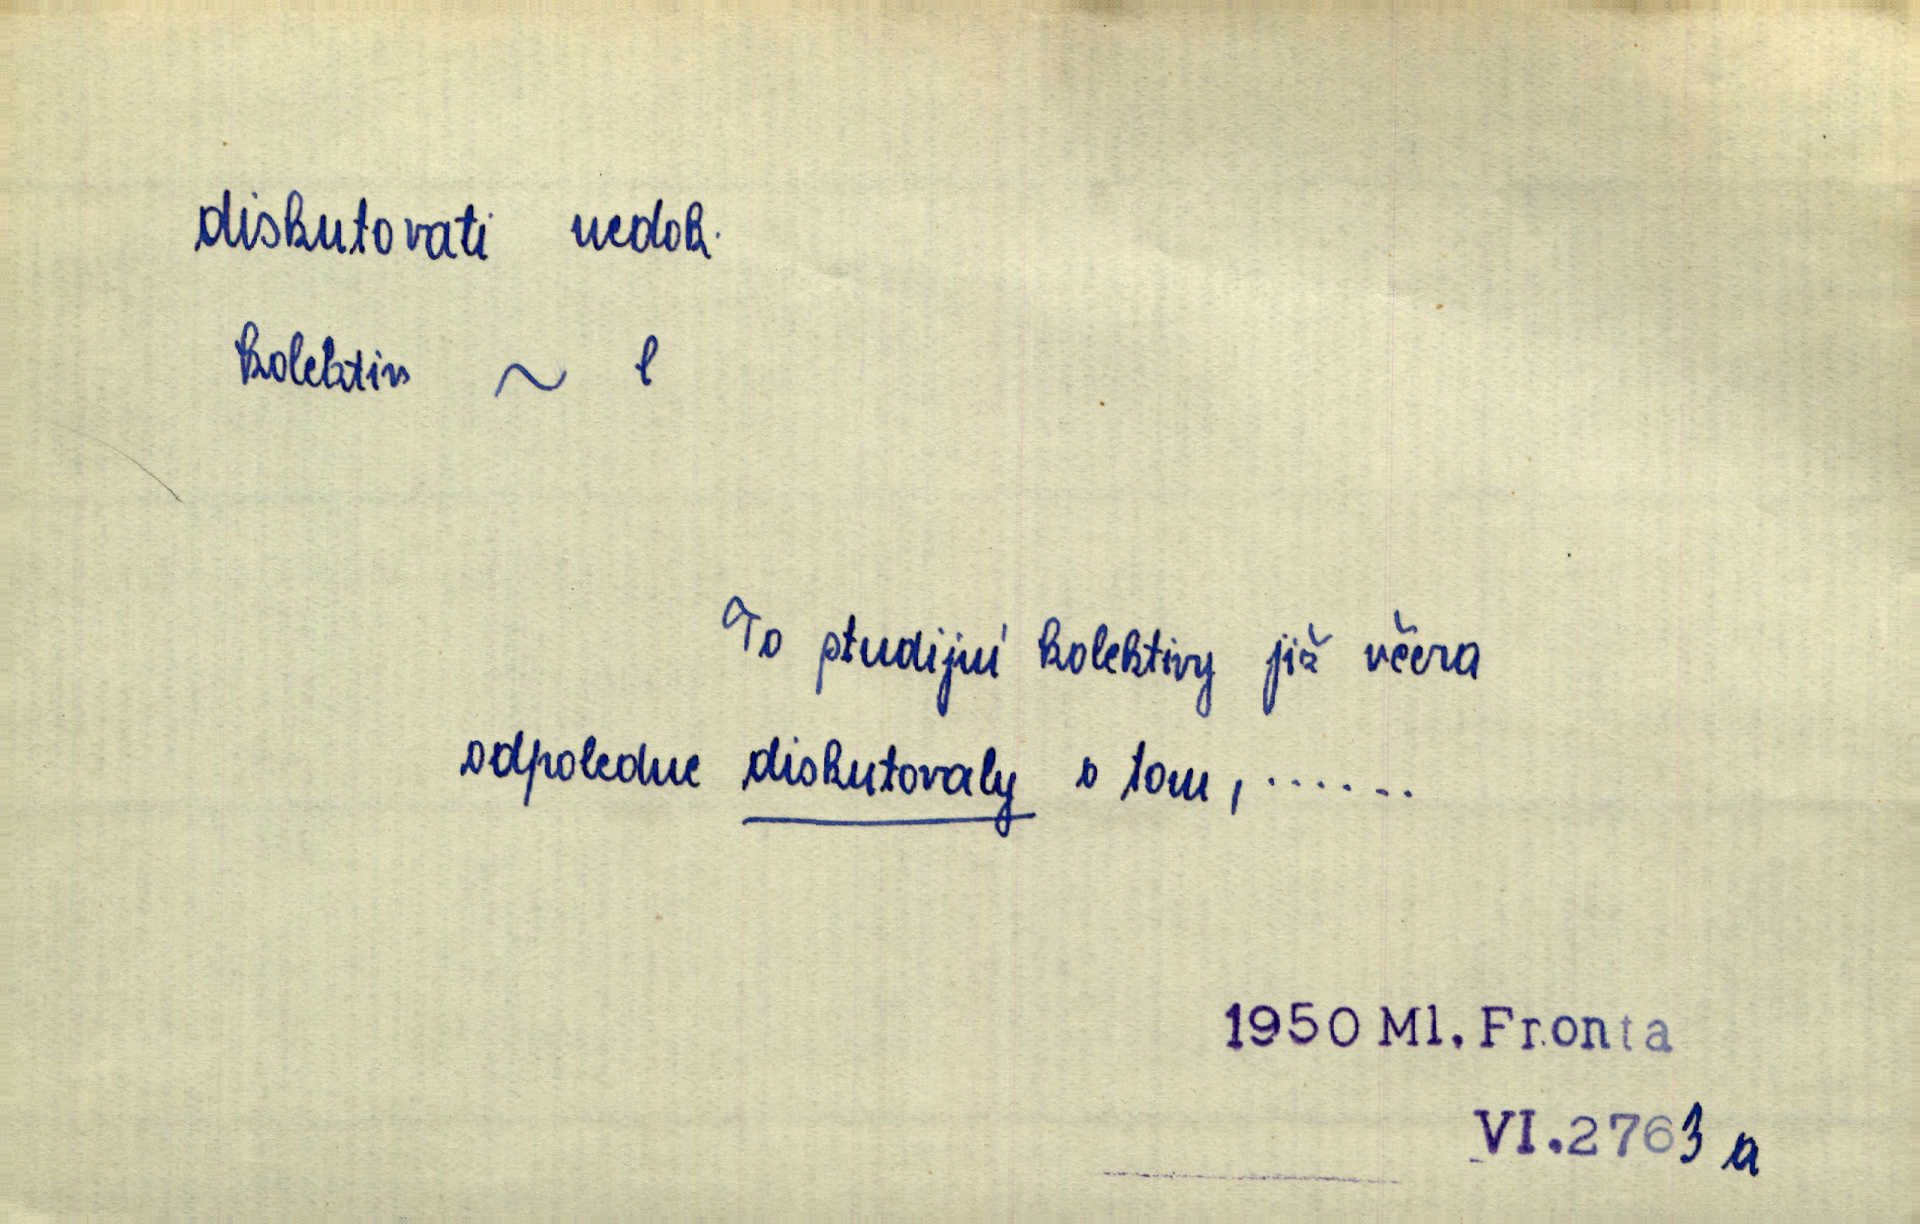 diskutovati nedok.
kolektiv ~ l
To studijní kolektivy již včera
odpoledne diskutovaly o tom, ......
1950 Ml. Fronta
VI.2763 a